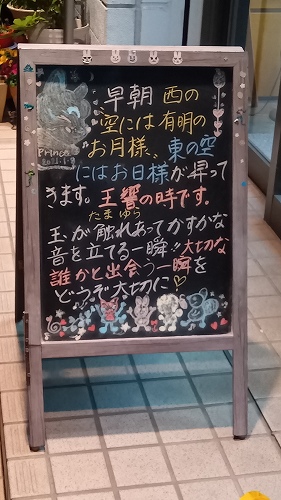 早朝 西の
空には有明の
お月様、東の空
にはお日様が昇って
きます。玉響の時です。
たまゆら
玉が触れあってかすかな
音を立てる一瞬!!大切な
誰かと出会う一瞬を
どうぞ大切に♡
Prince